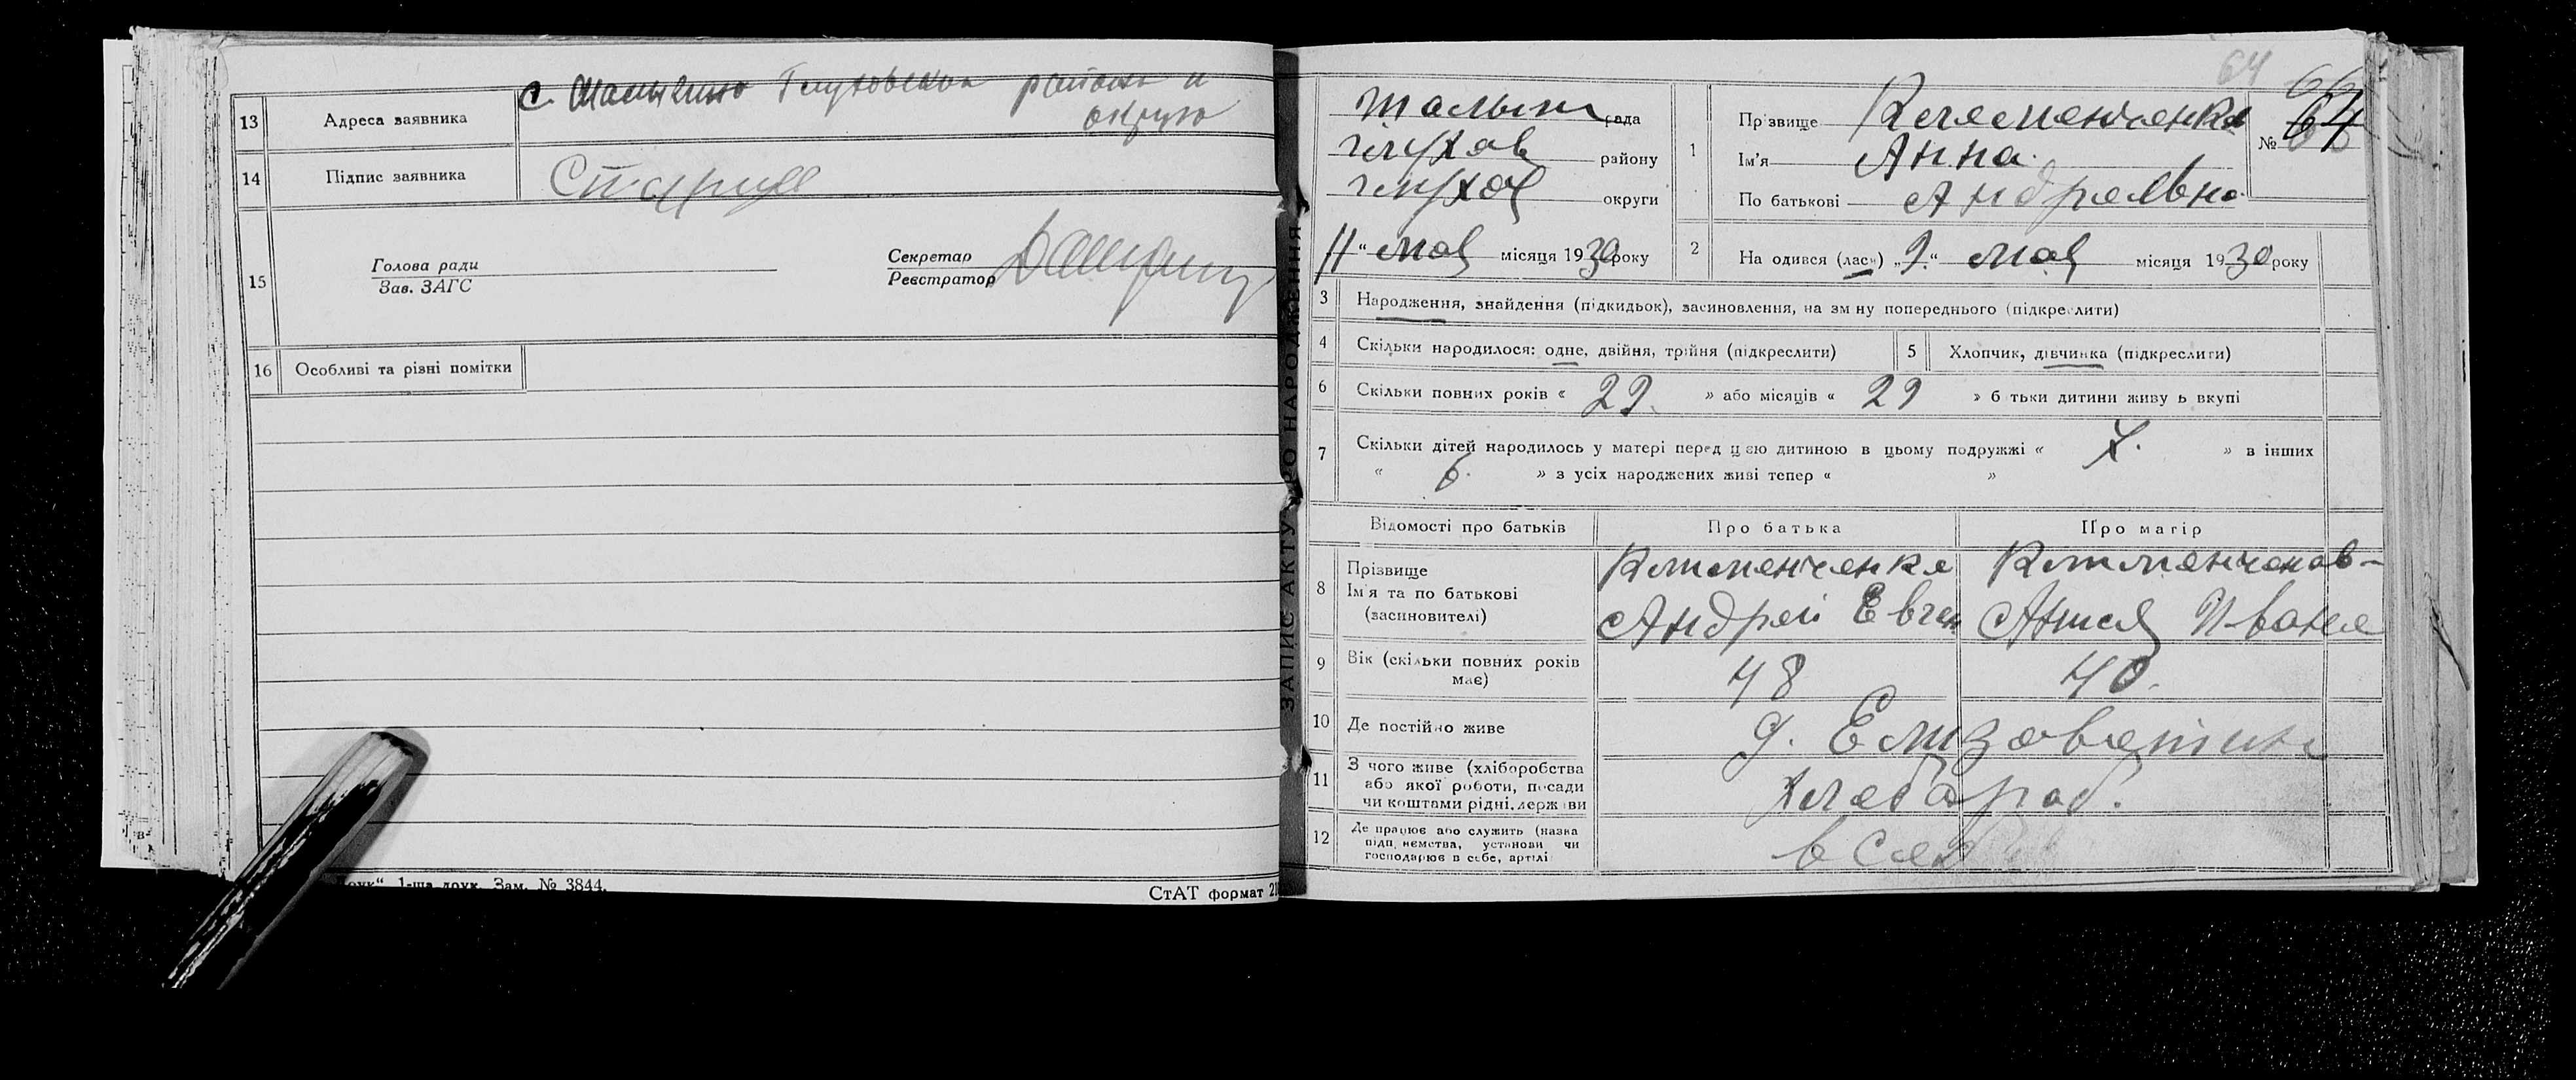 13 Адреса заявника с. Шалыгино Глуховского района и
округа
14 Підпис заявника
15 Голова ради
Зав. ЗАГС
Секретар
Реєстратор
16 Особливі та різні помітки
1-ша друк. Зам. № 3844.
СтАТ формат
ЗАПИС АКТУ ПРО НАРОДЖЕННЯ
64
рада
глухов району
глухов округи
11 " мая місяця 1930 року
1 Прізвище Клеменченко
Ім'я Анна
По батькові Андреевна
№ 64
2 На одився (лась) „9." мая місяця 1930 року
3 Народження, знайдення (підкидьок), засиновлення, на зміну попереднього (підкреслити)
4 Скільки народилося: одне, двійня, трійня (підкреслити)
5 Хлопчик, дівчинка (підкреслити)
6 Скільки повних років « 29. » або місяців « 29 » батьки дитини живуть вкупі
7 Скільки дітей народилось у матері перед цією дитиною в цьому подружжі « 7. » в інших
« 6. » з усіх народжених живі тепер « »
Відомості про батьків
Про батька
Про матір
8 Прізвище
Ім'я та по батькові
(засиновителі)
Климменченко
Андрей Евген
Ивана
9 Вік (скільки повних років
має)
48
40.
10 Де постійно живе
Елизоветин
11 З чого живе (хліборобства
або якої роботи, посади
чи коштами рідні, держави
хлебороб.
12 Де працює або служить (назва
підприємства, установи чи
господарює в себе, артілі
в